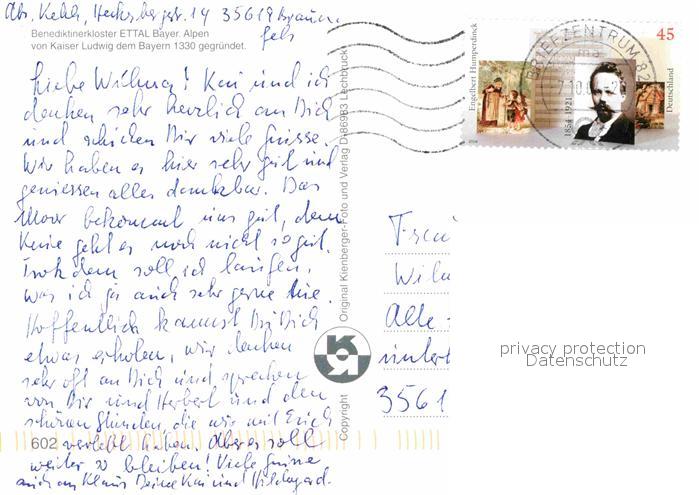 Abs. Kehh, Hecksbergstr. 14 35618 Braun
fels
Benediktinerkloster ETTAL Bayer. Alpen
von Kaiser Ludwig dem Bayern 1330 gegründet.
Liebe Wilma! Kai und ich
denken sehr herzlich an Dich
und schicken Dir viele Grüsse.
Wir haben es hier sehr gut und
geniessen alles dankbar. Das
Moor bekommt uns gut, dem
Knie geht es noch nicht so gut.
Trotzdem soll ich laufen,
was ich ja auch sehr gerne tue.
Hoffentlich kannst Du Dich
etwas erholen, wir denken
sehr oft an Dich und sprechen
von Dir und Herbert und den
schönen Stunden, die wir mit Euch
verlebt haben. Aber es soll
weiter so bleiben! Viele Grüsse
auch an Klaus Deine Kai und Hildegard.
602
Copyright
Original Kienberger-Foto und Verlag D-86983 Lechbruck
BRIEFZENTRUM 82
Engelbert Humperdinck
1854 - 1921
45
Deutschland
Frau
Wil
Alte
unter
3561
privacy protection
Datenschutz